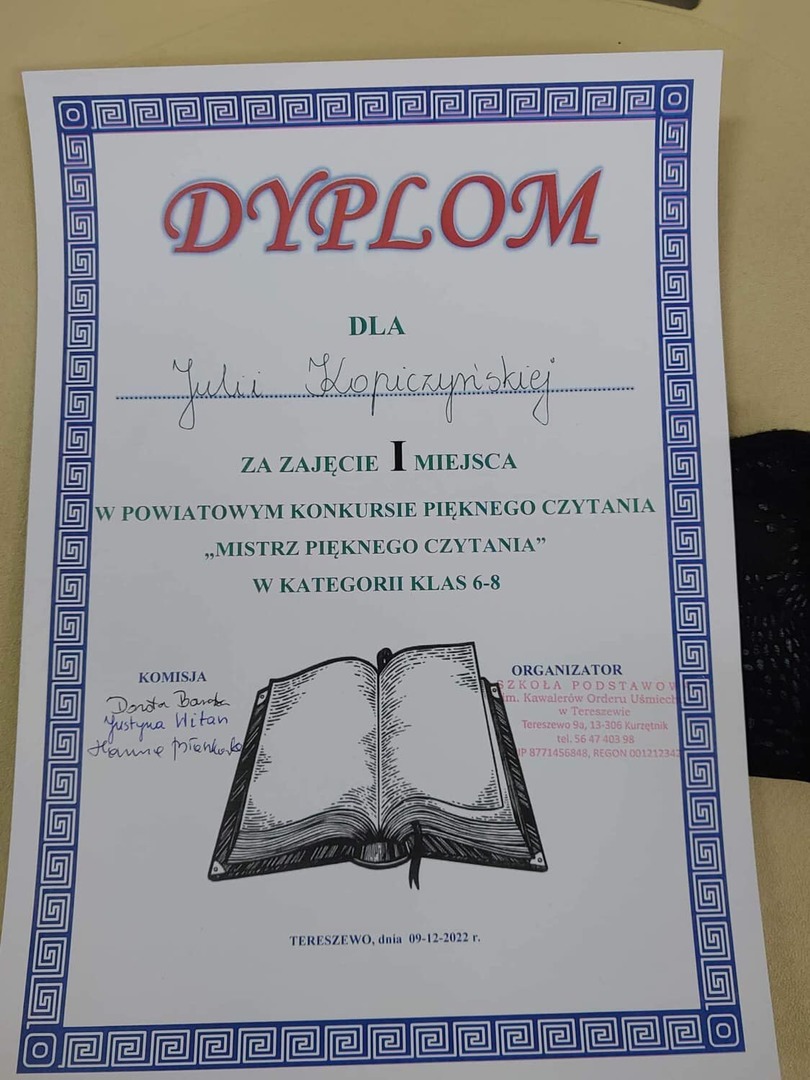 DYPLOM
DLA
Julii Kopiczyńskiej
ZA ZAJĘCIE I MIEJSCA
W POWIATOWYM KONKURSIE PIĘKNEGO CZYTANIA
„MISTRZ PIĘKNEGO CZYTANIA”
W KATEGORII KLAS 6-8
KOMISJA
Dorota
Justyna Witan
Hanna
ORGANIZATOR
SZKOŁA PODSTAWOW
im. Kawalerów Orderu Uśmiech
w Tereszewie
Tereszewo 9a, 13-306 Kurzętnik
tel. 56 47 403 98
IP 8771456848, REGON 001212342
TERESZEWO, dnia 09-12-2022 r.